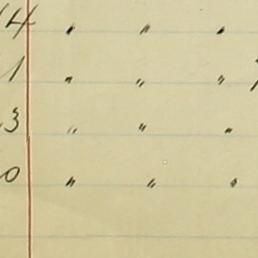 14 " " "
1 " " "
3 " " "
0 " " "